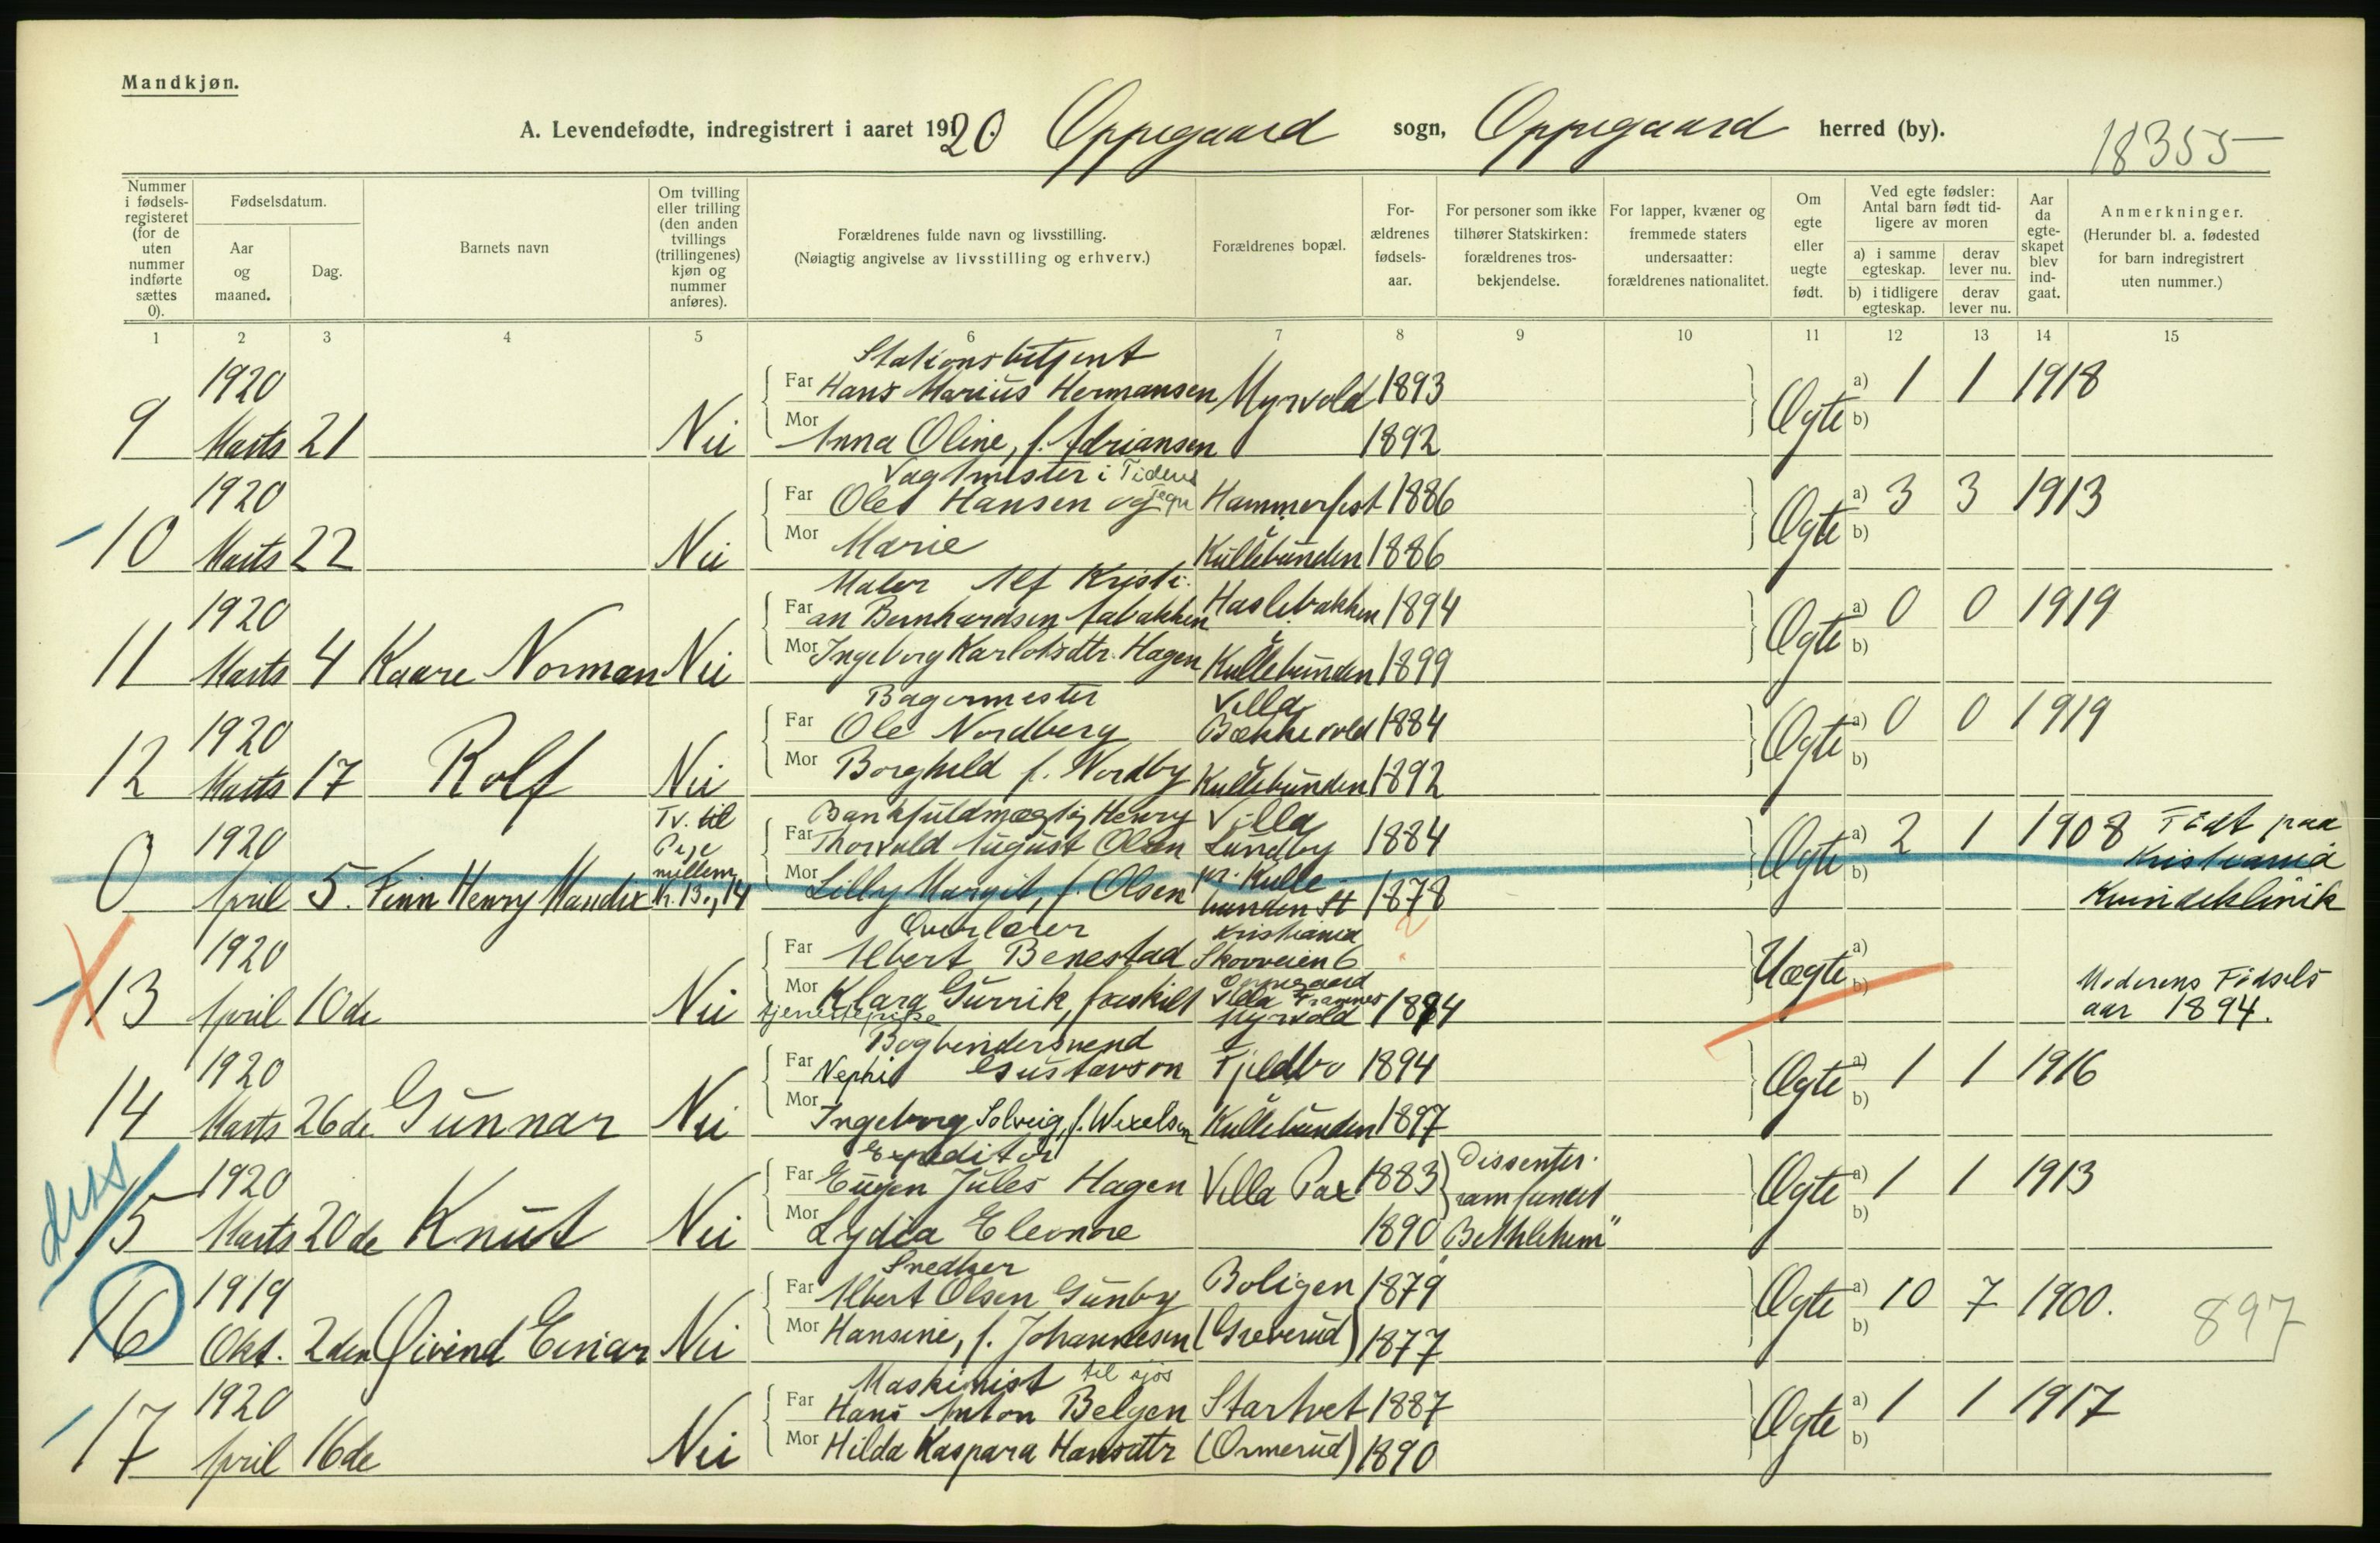 Mandkjøn.
A. Levendefødte, indregistrert i aaret 1920 Oppegaard sogn, Oppegaard herred (by).
18355
Nummer i fødsels-registeret (for de uten nummer indførte sættes 0).
Fødselsdatum.
Aar og maaned.
Dag.
Barnets navn
Om tvilling eller trilling (den anden tvillings (trillingenes) kjøn og nummer anføres).
Forældrenes fulde navn og livsstilling.
(Nøiagtig angivelse av livsstilling og erhverv.)
Forældrenes bopæl.
For-ældrenes fødsels-aar.
For personer som ikke tilhører Statskirken: forældrenes tros-bekjendelse.
For lapper, kvæner og fremmede staters undersaatter: forældrenes nationalitet.
Om egte eller uegte født.
Ved egte fødsler: Antal barn født tid-ligere av moren
a) i samme egteskap.
derav lever nu.
b) i tidligere egteskap.
derav lever nu.
Aar da egte-skapet blev ind-gaat.
Anmerkninger.
(Herunder bl. a. fødested for barn indregistrert uten nummer.)
1 2 3 4 5 6 7 8 9 10 11 12 13 14 15
Stationsbetjent
1920 Far Hans Marius Hermansen Myrvold 1893 Ægte a) 1 1 1918
9 Marts 21 Nei Mor Anna Oline, f. Adriansen 1892 b)
Vagtmester i Tidens
1920 Far Ole Hansen og tegn Hammerfest 1886 Ægte a) 3 3 1913
10 Marts 22 Nei Mor Marie Kullebunden 1886 b)
Maler Alf Kristi-
1920 Far an Bernhardsen Aabakken Haslebakken 1894 Ægte a) 0 0 1919
11 Marts 4 Kaare Norman Nei Mor Ingeborg Karlotsdtr. Hagen Kullebunden 1899 b)
Bagermester Villa
1920 Far Ole Nordberg Bækkevold 1884 Ægte a) 0 0 1919
12 Marts 17 Rolf Nei Mor Borghild f. Nordby Kullebunden 1892 b)
Tv. til Bankfuldmægtig Henry Villa
1920 Pige Far Thorvald August Olsen Lundby 1884 Ægte a) 2 1 1908 Født paa Kristiania
0 April 5. Finn Henry mellem Nr. 13 14 Mor Lilly Margit, f. Olsen pr. Kullebunden St 1878 b) Kvindeklinik
Overlærer Kristiania
1920 Far Albert Benestad Skovveien 6 ? Uægte a)
13 April 10de Nei Mor Klara Gurrik, fraskilt Oppegaard Villa Myrvold 1894 b) Moderens Fødsels
tjenestepike aar 1894.
Bogbindersvend
1920 Far Nephi Gustavson Fjeldbo 1894 Ægte a) 1 1 1916
14 Marts 26de Gunnar Nei Mor Ingeborg Solveig, f. Wexelsen Kullebunden 1897 b)
diss
Expeditør
1920 Far Eugen Jules Hagen Villa Pax 1883 Dissenter- Ægte a) 1 1 1913
samfundet
15 Marts 20de Knut Nei Mor Lydia Eleonore 1890 "Bethlehem" b)
Snedker
1919 Far Albert Olsen Gunby Boligen 1879 Ægte a) 10 7 1900.
16 Okt. 2den Øivind Einar Nei Mor Hansine, f. Johannesen (Greverud) 1877 b) 897
Maskinist til sjøs
1920 Far Hans Anton Belgen Startvet 1887 Ægte a) 1 1 1917
17 April 16de Nei Mor Hilda Kaspara Hansdtr (Ormerud) 1890 b)